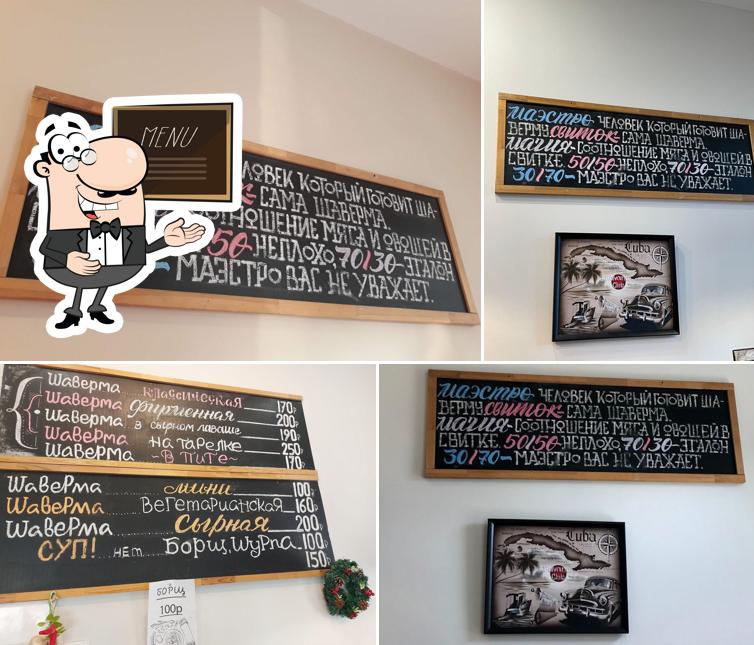 MENU
ЛОВЕК КОТОРЫЙ ГОТОВИТ ША-
САМА ШАВЕРМА.
ОТНОШЕНИЕ МЯСА И ОВОЩЕЙ В
50-НЕПЛОХО 70/30-ЭТАЛОН
МАЭСТРО ВАС НЕ УВАЖАЕТ.
МАЭСТРО- ЧЕЛОВЕК КОТОРЫЙ ГОТОВИТ ША-
ВЕРМУ СВИТОК- САМА ШАВЕРМА.
МАГИЯ- СООТНОШЕНИЕ МЯСА И ОВОЩЕЙ В
СВИТКЕ. 50/50-НЕПЛОХО 70/30-ЭТАЛОН
30/70- МАЭСТРО ВАС НЕ УВАЖАЕТ.
Cuba
Шаверма КЛАССИЧЕСКАЯ 170р
Шаверма Фирменная 200р
Шаверма В сырном лаваше 190р
Шаверма НА ТАРЕЛКЕ 250р
Шаверма ~В ПИТЕ~ 170р
ШаверМа мини 100р
ШаверМа ВегетарианскаЯ 160р
ШаверМа Сырная 200р
СУП! НЕТ Борщ, ШурПа 100р
150р
БОРЩ
100р
МАЭСТРО- ЧЕЛОВЕК КОТОРЫЙ ГОТОВИТ ША-
ВЕРМУ СВИТОК- САМА ШАВЕРМА.
МАГИЯ- СООТНОШЕНИЕ МЯСА И ОВОЩЕЙ В
СВИТКЕ. 50/50-НЕПЛОХО 70/30-ЭТАЛОН
30/70- МАЭСТРО ВАС НЕ УВАЖАЕТ.
Cuba